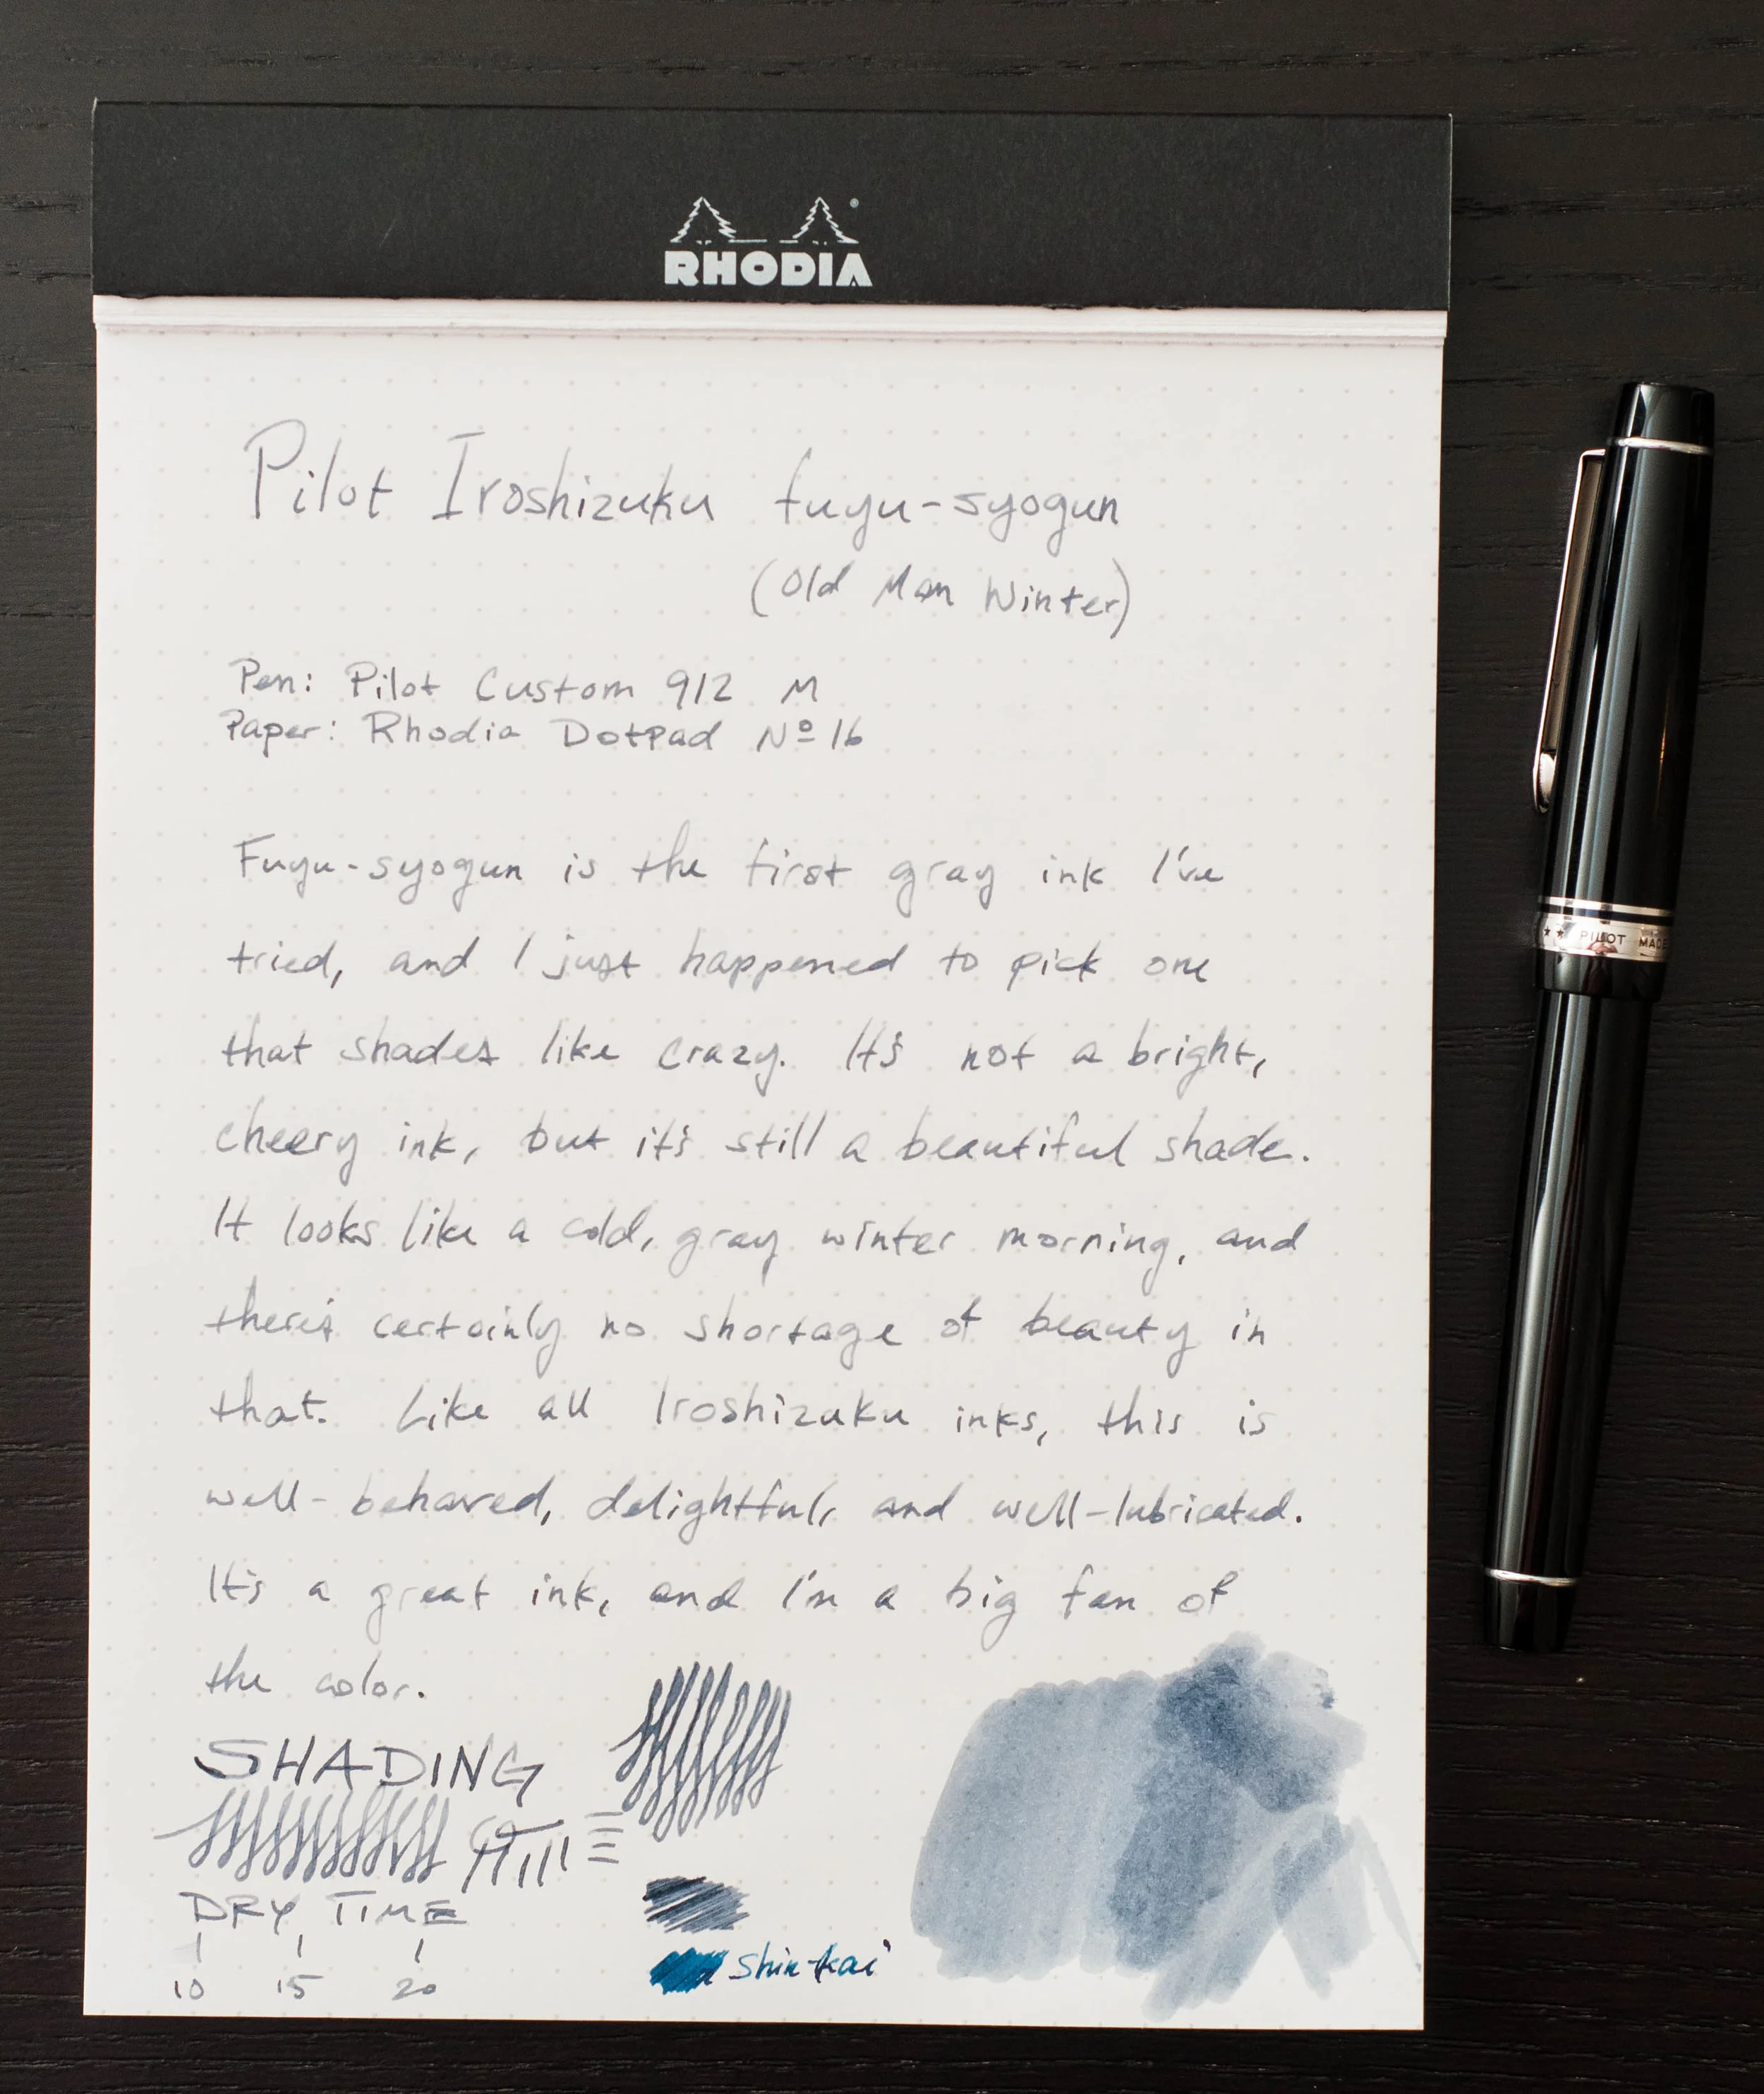 RHODIA
Pilot Iroshizuku fuyu-syogun
(Old Man Winter)
Pen: Pilot Custom 912 M
Paper: Rhodia DotPad Nº 16
Fuyu-syogun is the first gray ink I've
tried, and I just happened to pick one
that shades like crazy. It's not a bright,
cheery ink, but it's still a beautiful shade.
It looks like a cold, gray winter morning, and
there's certainly no shortage of beauty in
that. Like all Iroshizuku inks, this is
well-behaved, delightful, and well-lubricated.
It's a great ink, and I'm a big fan of
the color.
SHADING
DRY TIME
10 15 20
shin-kai
★ ★ PILOT MADE